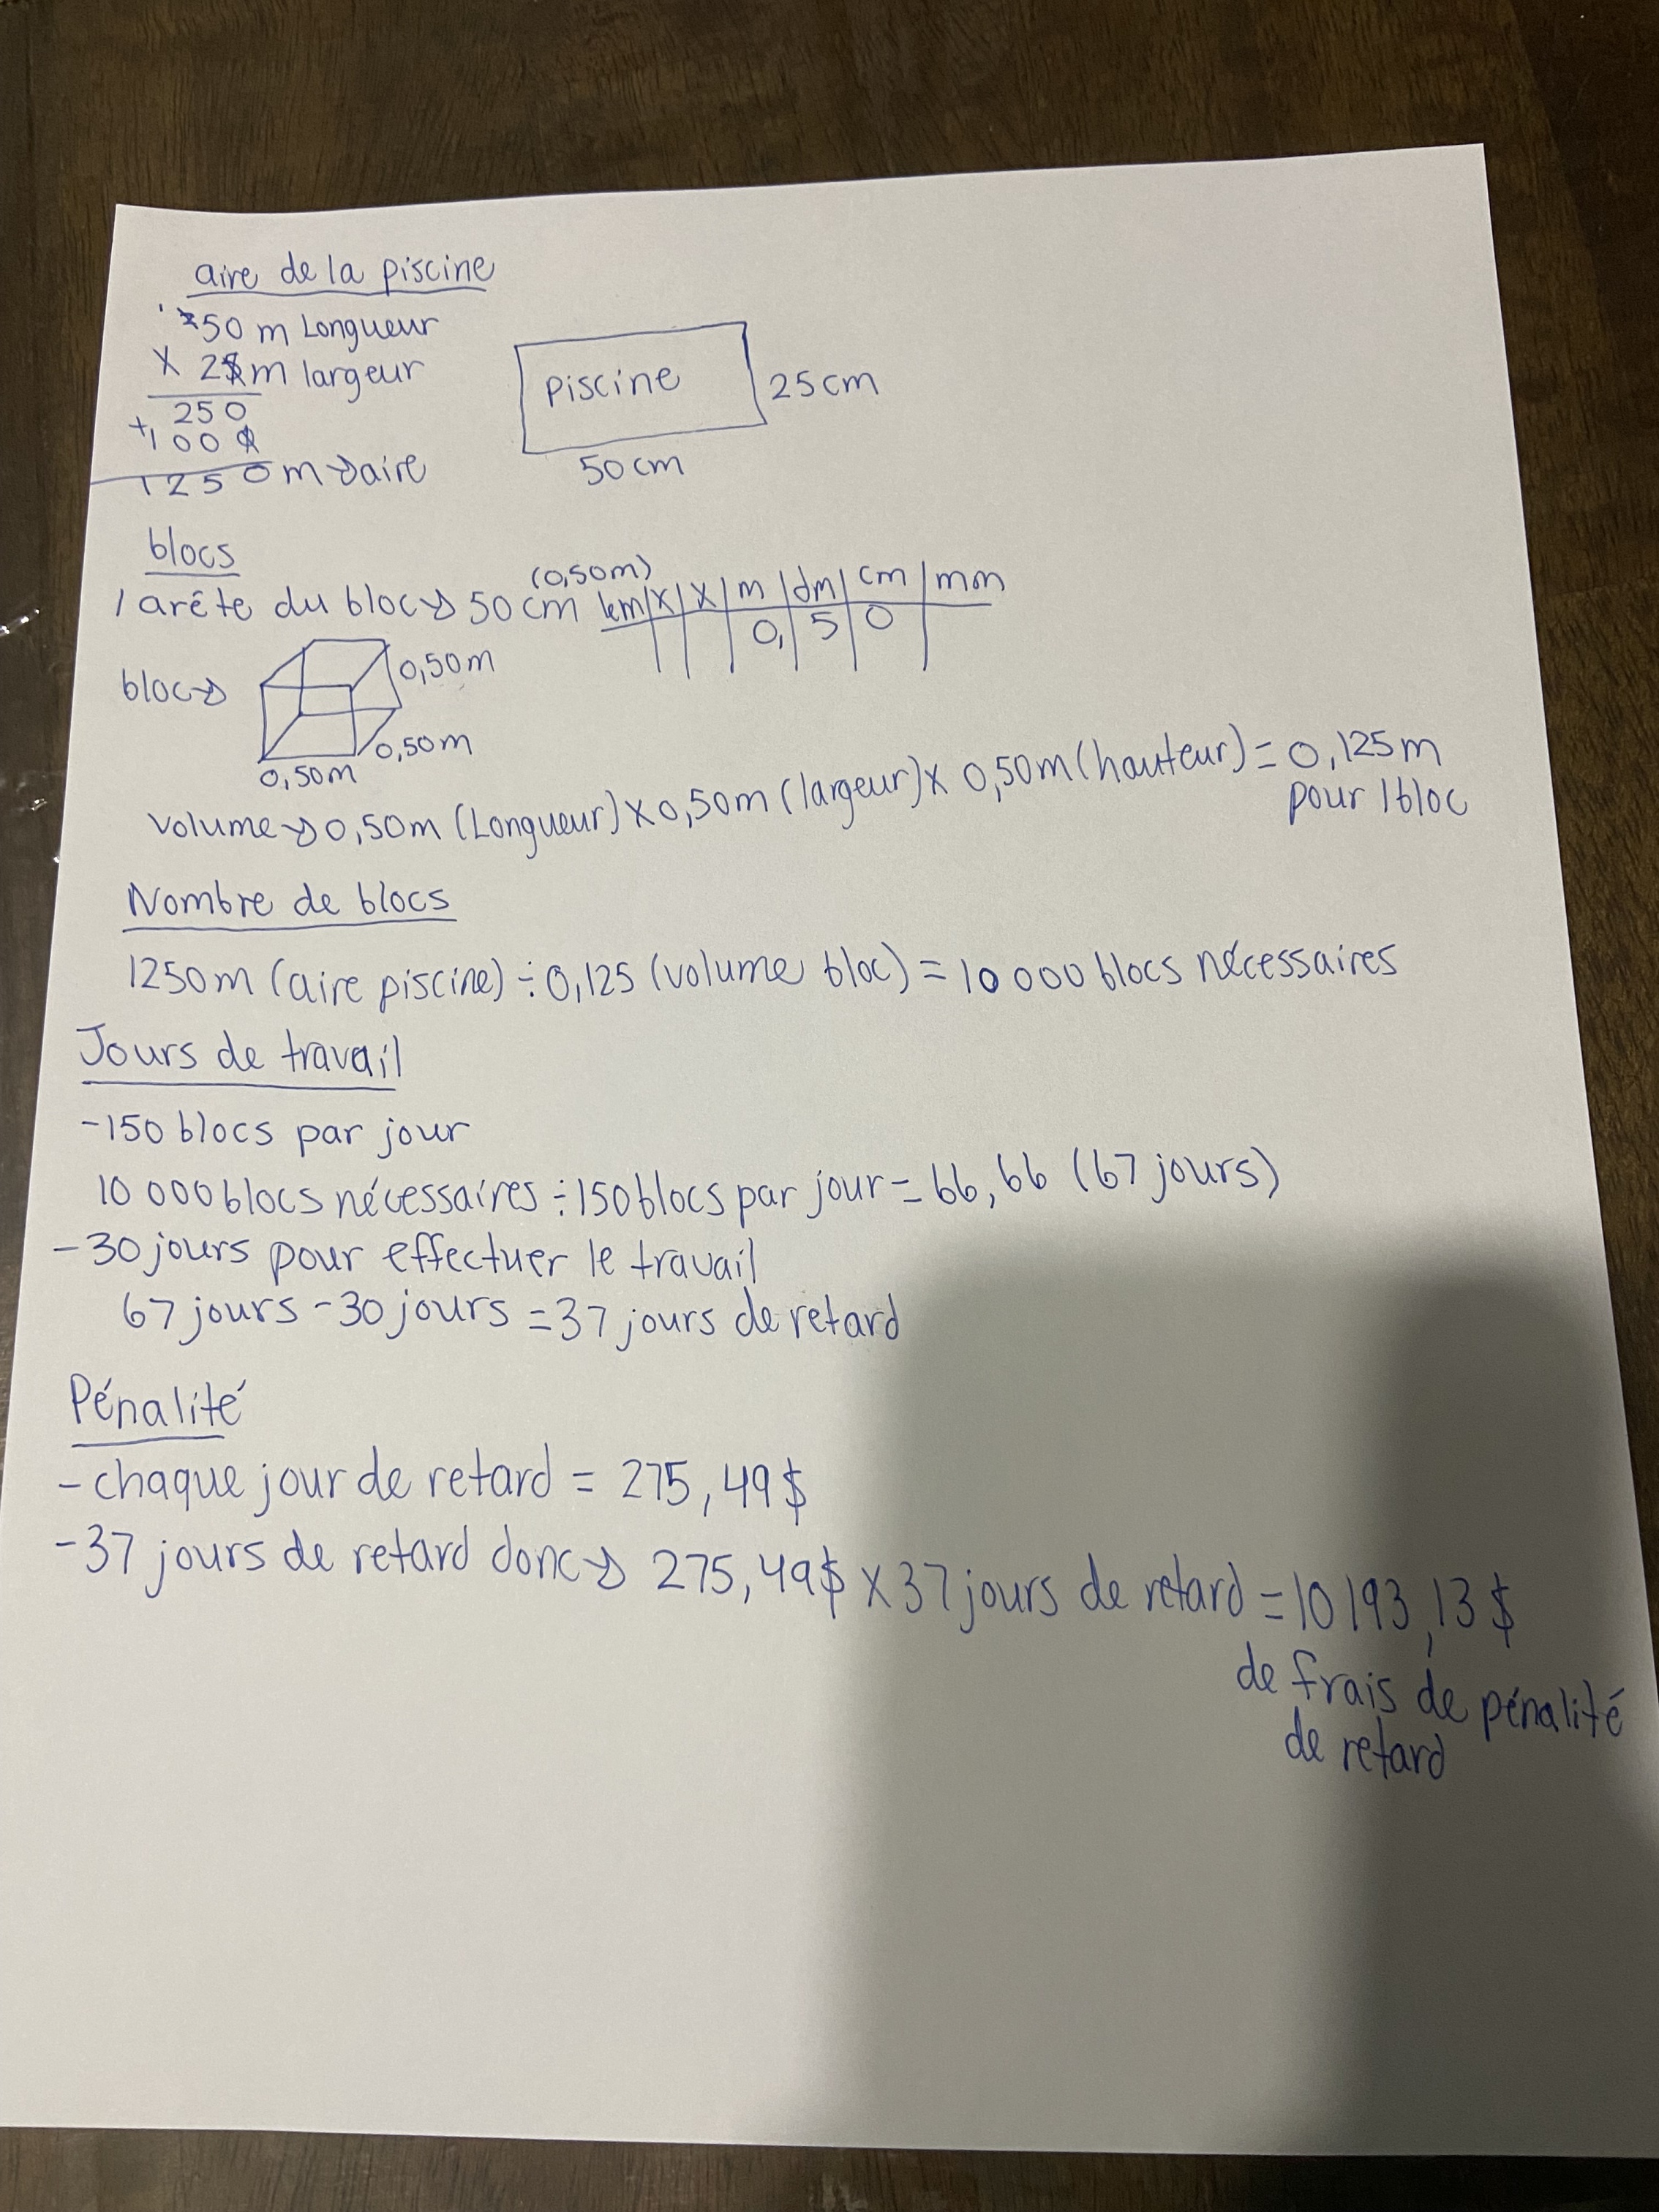 aire de la piscine
50 m Longueur
X 25m largeur
250
+1000
1250m → aire
piscine
25cm
50cm
blocs
(0,50m)
1 arête du bloc → 50cm
km | X | X | m | dm | cm | mm
0, 5 0
bloc →
0,50m
0,50m
0,50m
volume → 0,50m (Longueur) X 0,50m (largeur) x 0,50m (hauteur) = 0,125m
pour 1 bloc
Nombre de blocs
1250m (aire piscine) ÷ 0,125 (volume bloc) = 10 000 blocs nécessaires
Jours de travail
-150 blocs par jour
10 000 blocs nécessaires ÷ 150 blocs par jour = 66,66 (67 jours)
-30 jours pour effectuer le travail
67 jours - 30 jours = 37 jours de retard
Pénalité
- chaque jour de retard = 275,49$
-37 jours de retard donc → 275,49$ X 37 jours de retard = 10 193,13$
de frais de pénalité
de retard